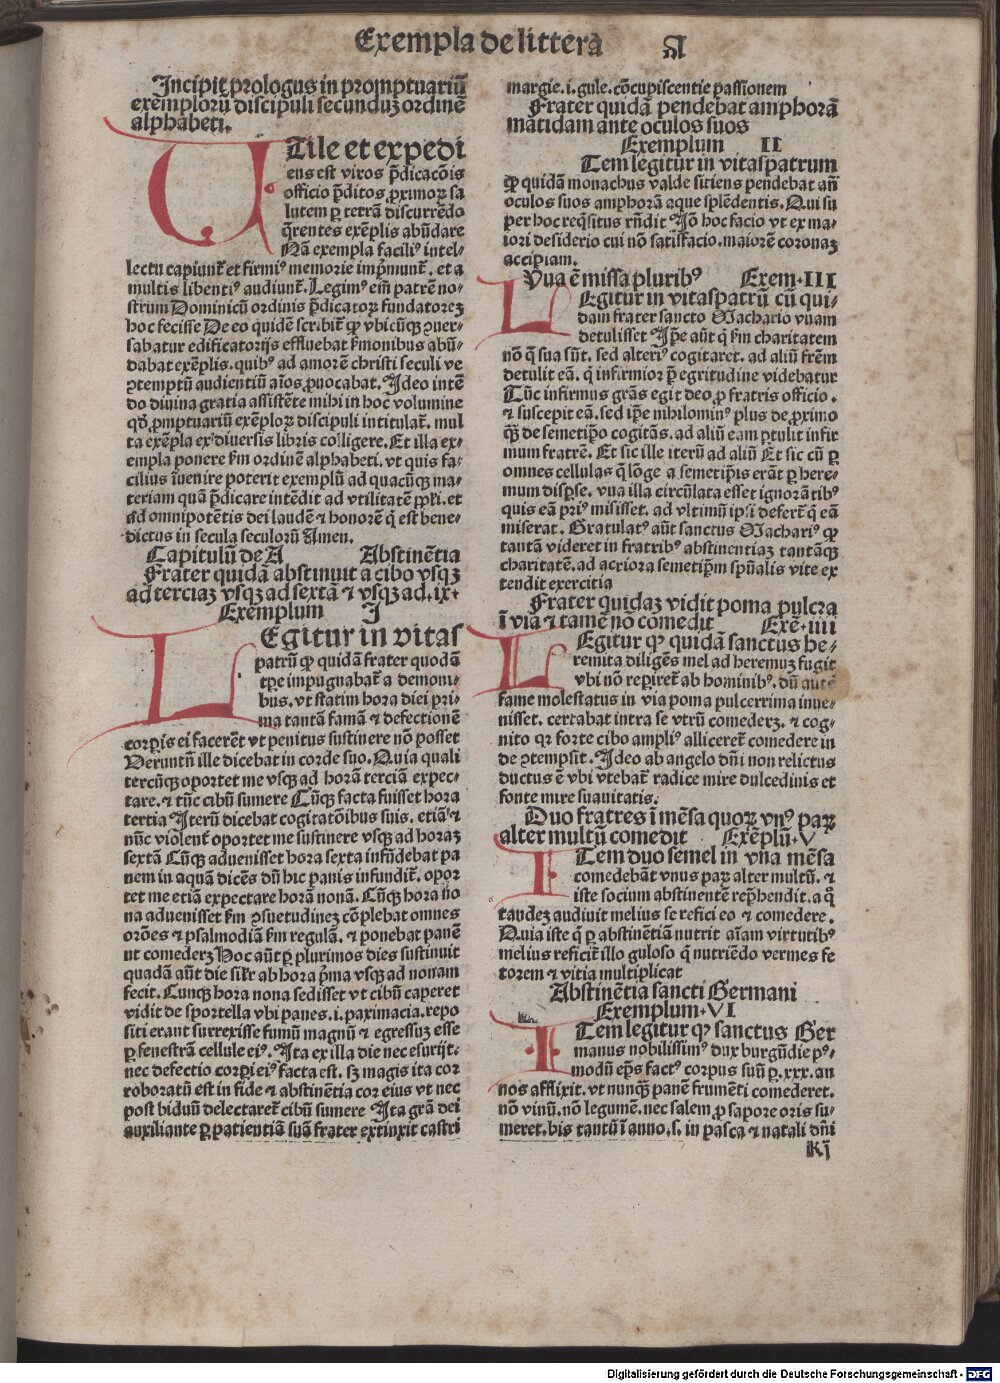 Exempla de littera A
Incipit prologus in promptuariū
exemploꝝ discipuli secunduꝫ ordinē
alphabeti.
UTile et expedi
ens est viros p̄dicacōis
officio p̄ditos ꝓximoꝝ sa
lutem ꝑ terrā discurrēdo
q̄rentes exēplis abūdare
Nā exempla facili⁹ intel⸗
lectu capiunt᷑ et firmi⁹ memorie imp̄munt᷑. et a
multis libenti⁹ audiunt᷑. Legim⁹ eīm patrē no⸗
strum Dominicū ordinis p̄dicatoꝝ fundatoreꝫ
hoc fecisse De eo quidē scribit᷑ ꝙ vbicūqꝫ ꝯuer⸗
sabatur edificatorijs effluebat ẜmonibus abū⸗
dabat exēplis. quib⁹ ad amorē christi seculi ve
ꝯtemptū audientiū aīos ꝓuocabat. Ideo intē
do diuina gratia assistēte mihi in hoc volumine
qd̄ ꝓmptuariū exēploꝝ discipuli intitulat᷑. mul
ta exēpla ex diuersis libris colligere. Et illa ex⸗
empla ponere ẜm ordinē alphabeti. vt quis fa⸗
cilius īuenire poterit exemplū ad quacūqꝫ ma⸗
teriam quā p̄dicare intēdit ad vtilitatē ꝓxi. et
ad omnipotētis dei laudē ⁊ honorē q̄ est bene⸗
dictus in secula seculorū Amen.
Capitulū de A Abstinētia
Frater quidā abstinuit a cibo vsqꝫ
ad terciaꝫ vsqꝫ ad sextā ⁊ vsqꝫ ad .ix.
Exemplum I
LEgitur in vitas
patrū ꝙ quidā frater quodā
tp̄e impugnabat᷑ a demoni⸗
bus. vt statim hora diei pri⸗
ma tantā famā ⁊ defectionē
corpis ei facerēt vt penitus sustinere nō posset
Veruntn̄ ille dicebat in corde suo. Quia quali
tercūqꝫ oportet me vsqꝫ ad horā terciā expec⸗
tare. ⁊ tūc cibū sumere Cūqꝫ facta fuisset hora
tertia Iterū dicebat cogitatōibus suis. etiā ⁊
nūc violent᷑ oportet me sustinere vsqꝫ ad horaꝫ
sextā Cūqꝫ aduenisset hora sexta infūdebat pa
nem in aquā dicēs dū hic panis infundit᷑. opor
tet me etiā expectare horā nonā. Cūqꝫ hora no
na aduenisset ẜm ꝯsuetudineꝫ cōplebat omnes
orōes ⁊ psalmodiā ẜm regulā. ⁊ ponebat panē
ut comederꝫ Hoc aūt ꝑ plurimos dies sustinuit
quadā aūt die silr᷑ ab hora p̄ma vsqꝫ ad nonam
fecit. Cunqꝫ hora nona sedisset vt cibū caperet
vidit de sportella vbi panes .i. paximacia. repo
siti erant surrexisse fumū magnū ⁊ egressuꝫ esse
ꝑ fenestrā cellule ei⁹. Ita ex illa die nec esurijt.
nec defectio corpi ei⁹ facta est. sꝫ magis ita cor
roboratū est in fide ⁊ abstinētia cor eius vt nec
post biduū delectaret᷑ cibū sumere Ita grā dei
auxiliante ꝑ patientiā suā frater extinxit castri
margie. i. gule. cōcupiscentie passionem
Frater quidā pendebat amphorā
matidam ante oculos suos
Exemplum II
ITem legitur in vitaspatrum
ꝙ quidā monachus valde sitiens pendebat an̄
oculos suos amphorā aque splēdentis. Qui su
per hoc reqͥsitus rn̄dit Iō hoc facio vt ex ma⸗
iori desiderio cui nō satisfacio. maiorē coronaꝫ
accipiam.
Vua ē missa plurib⁹ Exem. III
LEgitur in vitaspatrū cū qui⸗
dam frater sancto Machario vuam
detulisset Ip̄e aūt q̄ ẜm charitatem
nō q̄ sua sūt. sed alteri⁹ cogitaret. ad aliū frēm
detulit eā. q̄ infirmior p̄ egritudine videbatur
Tūc infirmus grās egit deo ꝓ fratris officio.
⁊ suscepit eā. sed ip̄e nihilomin⁹ plus de ꝓximo
qꝫ̄ de semetip̄o cogitās. ad aliū eam ꝑtulit infir
mum fratrē. Et sic ille iterū ad aliū Et sic cū ꝑ
omnes cellulas q̄ lōge a semetip̄is erāt ꝑ here⸗
mum disp̄se. vua illa circūlata esset ignorātib⁹
quis eā pri⁹ misisset. ad vltimū ip̄i defert᷑ q̄ eā
miserat. Gratulat⁹ aūt sanctus Machari⁹ ꝙ
tantā videret in fratrib⁹ abstinentiaꝫ tantāqꝫ
charitatē. ad acriora semetip̄m sp̄ualis vite ex
tendit exercitia
Frater quidaꝫ vidit poma pulcra
ī via ⁊ tamē nō comedit Exē. iiii
LEgitur ꝙ quidā sanctus he⸗
remita diligēs mel ad heremuꝫ fugit
vbi nō reperiret᷑ ab hominib⁹. dū autē
fame molestatus in via poma pulcerrima inue⸗
nisset. certabat intra se vtrū comederꝫ. ⁊ cog⸗
nito qꝛ forte cibo ampli⁹ alliceret᷑ comedere in
de ꝯtempsit. Ideo ab angelo dn̄i non relictus
ductus ē vbi vtebat᷑ radice mire dulcedinis et
fonte mire suauitatis.
Duo fratres ī mēsa quoꝝ vn⁹ paꝝ
alter multū comedit Exēplū. V
ITem duo semel in vna mēsa
comedebāt vnus paꝝ alter multū. ⁊
iste socium abstinentē rep̄hendit. a q̄
tandeꝫ audiuit melius se refici eo ⁊ comedere.
Quia iste q̄ ꝑ abstinētiā nutrit aīam virtutib⁹
melius reficit᷑ illo guloso q̄ nutriēdo vermes fe
torem ⁊ vitia multiplicat
Abstinētia sancti Germani
Exemplum. VI
ITem legitur ꝙ sanctus Ger
manus nobilissim⁹ dux burgūdie p⁹⸗
modū ep̄s fact⁹ corpus suū ꝑ .xxx. an
nos afflixit. vt nunqꝫ̄ panē frumēti comederet.
nō vinū. nō legumē. nec salem ꝓ sapore oris su⸗
meret. bis tantū ī anno. s. in pasca ⁊ natali dn̄i
Digitalisierung gefördert durch die Deutsche Forschungsgemeinschaft - DFG